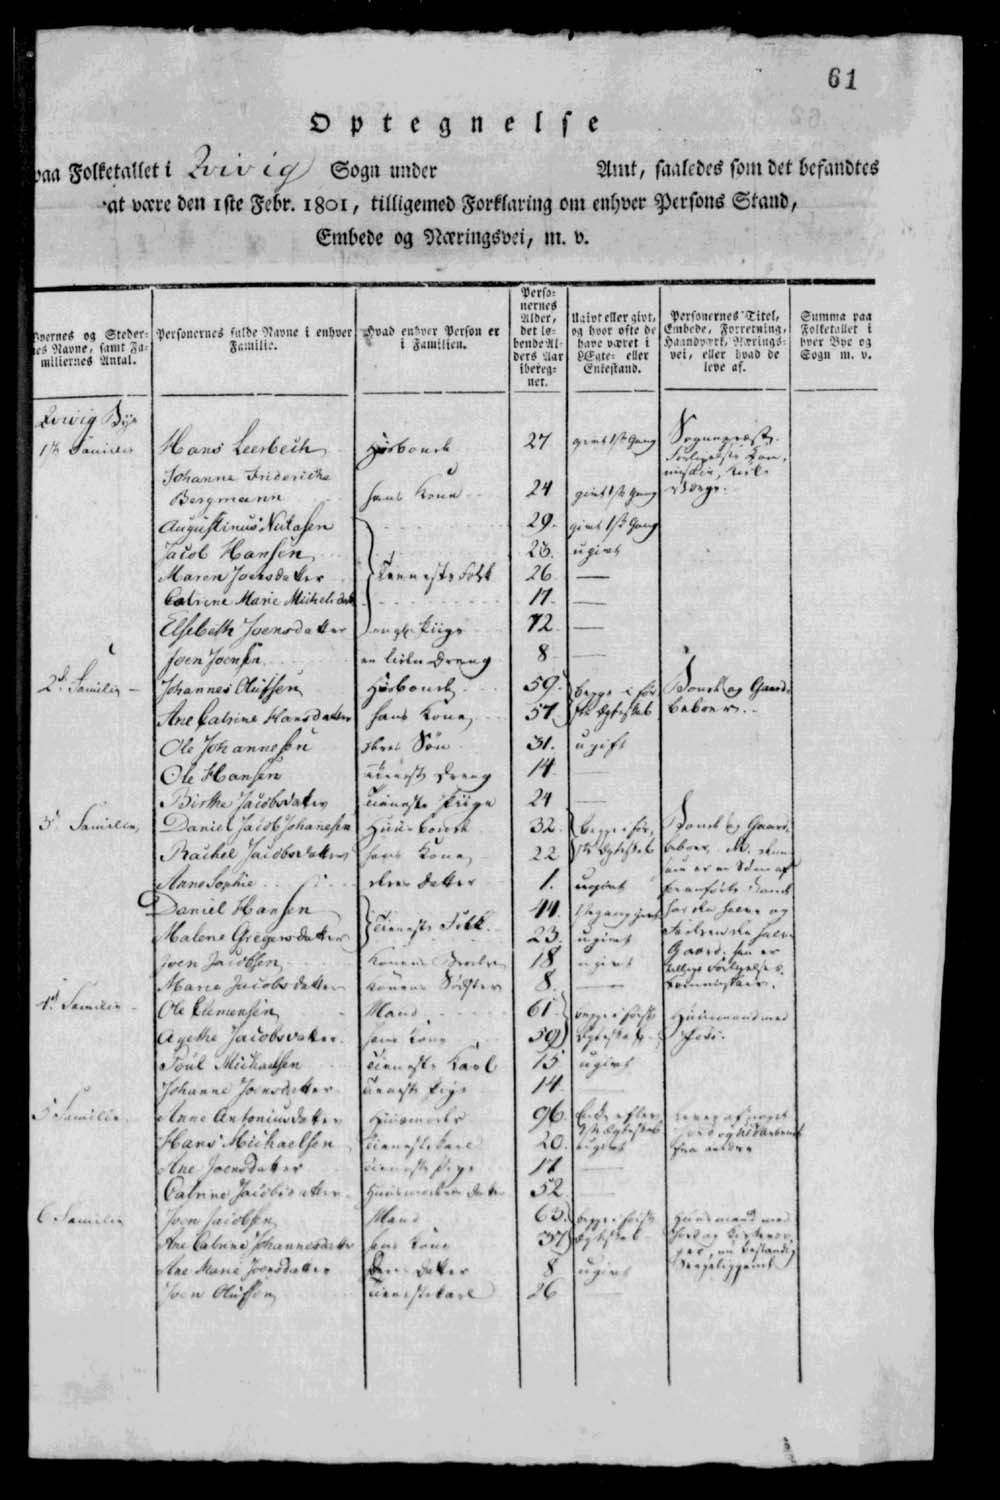 61
Optegnelse
paa Folketallet i Qvivig Sogn under Amt, saaledes som det befandtes
at være den 1ste Febr. 1801, tilligemed Forklaring om enhver Persons Stand,
Embede og Næringsvei, m. v.
Byernes og Steder-
nes Navne, samt Fa-
miliernes Antal.
Personernes fulde Navne i enhver
Familie.
Hvad enhver Person er
i Familien.
Perso-
nernes
Alder,
det lø-
bende Al-
ders Aar
ibereg-
net.
Ugivt eller givt,
og hvor ofte de
have været i
Ægte- eller
Enkestand.
Personernes Titel,
Embede, Forretning,
Haandværk, Nærings-
vei, eller hvad de
leve af.
Summa paa
Folketallet i
hver Bye og
Sogn m. v.
Qvivig Bye
1te Familie Hans Leerbech Huusbonde 27 givt 1ste Gang Sognepræst,
Johanne Friderichs
Bergmann hans Kone 24 givt 1ste Gang
Augustinus 29 givt 1ste Gang
Jacob Hansen 23 ugivt
Maren Joensdatter Tienneste Folk 26 —
Catrine Marie Michelsdatt 17 —
Elsebeth Joensdatter 72 —
Joen Joensen en liden Dreng 8 —
2d Familie Johannes Olufsen Huusbonde 59 begge i før- Bonde og Gaard-
Ane Catrine Hansdatter hans Kone 57 ste Ægteskab beboer
Ole Johannesen deres Søn 31 ugift
Ole Hansen Tieneste Dreng 14 —
Birthe Jacobsdatter Tieneste Piige 24 —
3d Familie Daniel Jacob Johanesen Huusbonde 32 begge i før- Bonde og Gaard-
Rachel Jacobsdatter hans Kone 22 ste Ægteskab beboer
Anne Sophie deres Datter 1 ugivt
Daniel Hansen 44
Malene Gregersdatter Tieneste Folk 23 ugivt
Joen Jacobsen Konens Broder 18 ugivt
Marie Jacobsdatter Konens Søster 8 —
4d Familie Ole Clemensen Mand 61 begge i første Huusmand med
Agethe Jacobsdatter hans Kone 59 Ægteskab Jord.
Poul Michaelsen Tieneste Karl 15 ugivt
Johanne Joensdatter Tieneste Pige 14 —
5 Familie Anne Antoniusdatter Huusmoder 96 Enke efter
1ste Ægteskab
Hans Michaelsen Tienestekarl 20 ugivt
Ane Joensdatter Tieneste Pige 17 —
Catrine Jacobsdatter Huusmoderens Datter 52 —
6 Familie Joen Jacobsen Mand 63 begge i første Huusmand med
Ane Catrine Johannesdatter hans Kone 37 Ægteskab Jord og
Ane Marie Joensdatter Deres Datter 8 ugivt Sengeliggende
Joen Olufsen Tienestekarl 26 —